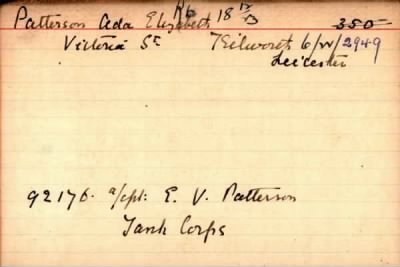 Patterson Ada Elizabeth 18 350
Victoria St Kilworth 6/W/2949
Leicester
92176. a/cpl: E. V. Patterson
Tank Corps